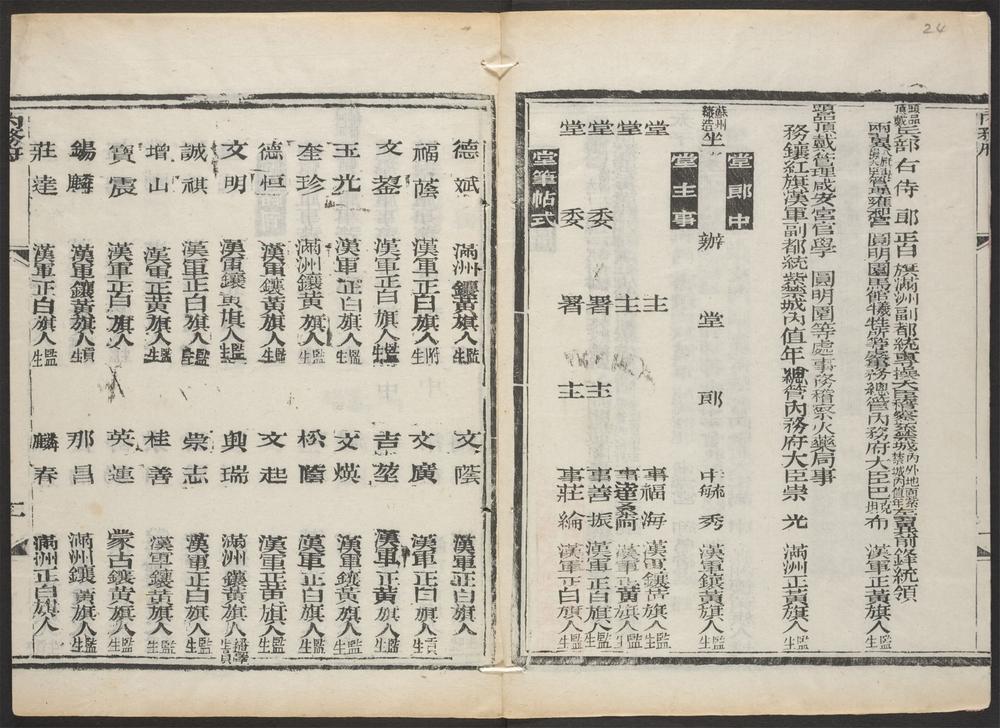 24
兵部右侍郎正白旗滿洲副都統專操大臣稽察紫禁城內外地面
兩翼
圓明園
事務總管內務府大臣巴克坦布 漢軍正黃旗人監生
頭品頂戴管理咸安宮官學 圓明園等處事務稽察火藥局事
務鑲紅旗漢軍副都統紫禁城內值年總管內務府大臣崇光 滿洲正黃旗人監生
堂郎中
蘇州織造坐辦堂郎中毓秀 漢軍鑲黃旗人監生
堂主事
堂主事福海 漢軍鑲黃旗人監生
堂主事達桑阿 漢軍正黃旗人監生
堂委署主事善振 漢軍正白旗人監生
堂委署主事莊綸 漢軍正白旗人監生
堂筆帖式
德斌 滿洲鑲黃旗人監生 文蔭 漢軍正白旗人
福蔭 漢軍正白旗人附生 文廣 漢軍正白旗人貢生
文鋆 漢軍正白旗人監生 吉堃 漢軍正黃旗人監生
玉光 漢軍正白旗人監生 文煐 漢軍鑲黃旗人監生
奎珍 滿洲鑲黃旗人監生 松蔭 漢軍正白旗人監生
德恒 漢軍鑲黃旗人監生 文起 漢軍正黃旗人監生
文明 漢軍鑲黃旗人監生 興瑞 滿洲鑲黃旗人繙譯生員
誠祺 漢軍正白旗人監生 崇志 漢軍正白旗人監生
增山 漢軍正黃旗人監生 桂善 漢軍鑲黃旗人監生
寶震 漢軍正白旗人監生 英連 蒙古鑲黃旗人監生
錫麟 漢軍鑲黃旗人貢生 那昌 滿洲鑲黃旗人監生
莊達 漢軍正白旗人監生 麟春 滿洲正白旗人監生
內務府